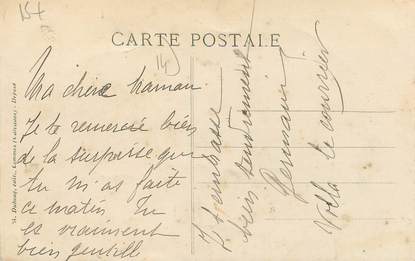 15+
CARTE POSTALE
14
Ma chère Maman
Je te remercie bien
de la surprise que
tu m'as faite
ce matin. Tu
es vraiment
bien gentill
J t'embrasse
bien tendrement
Germaine
Voilà le courrier